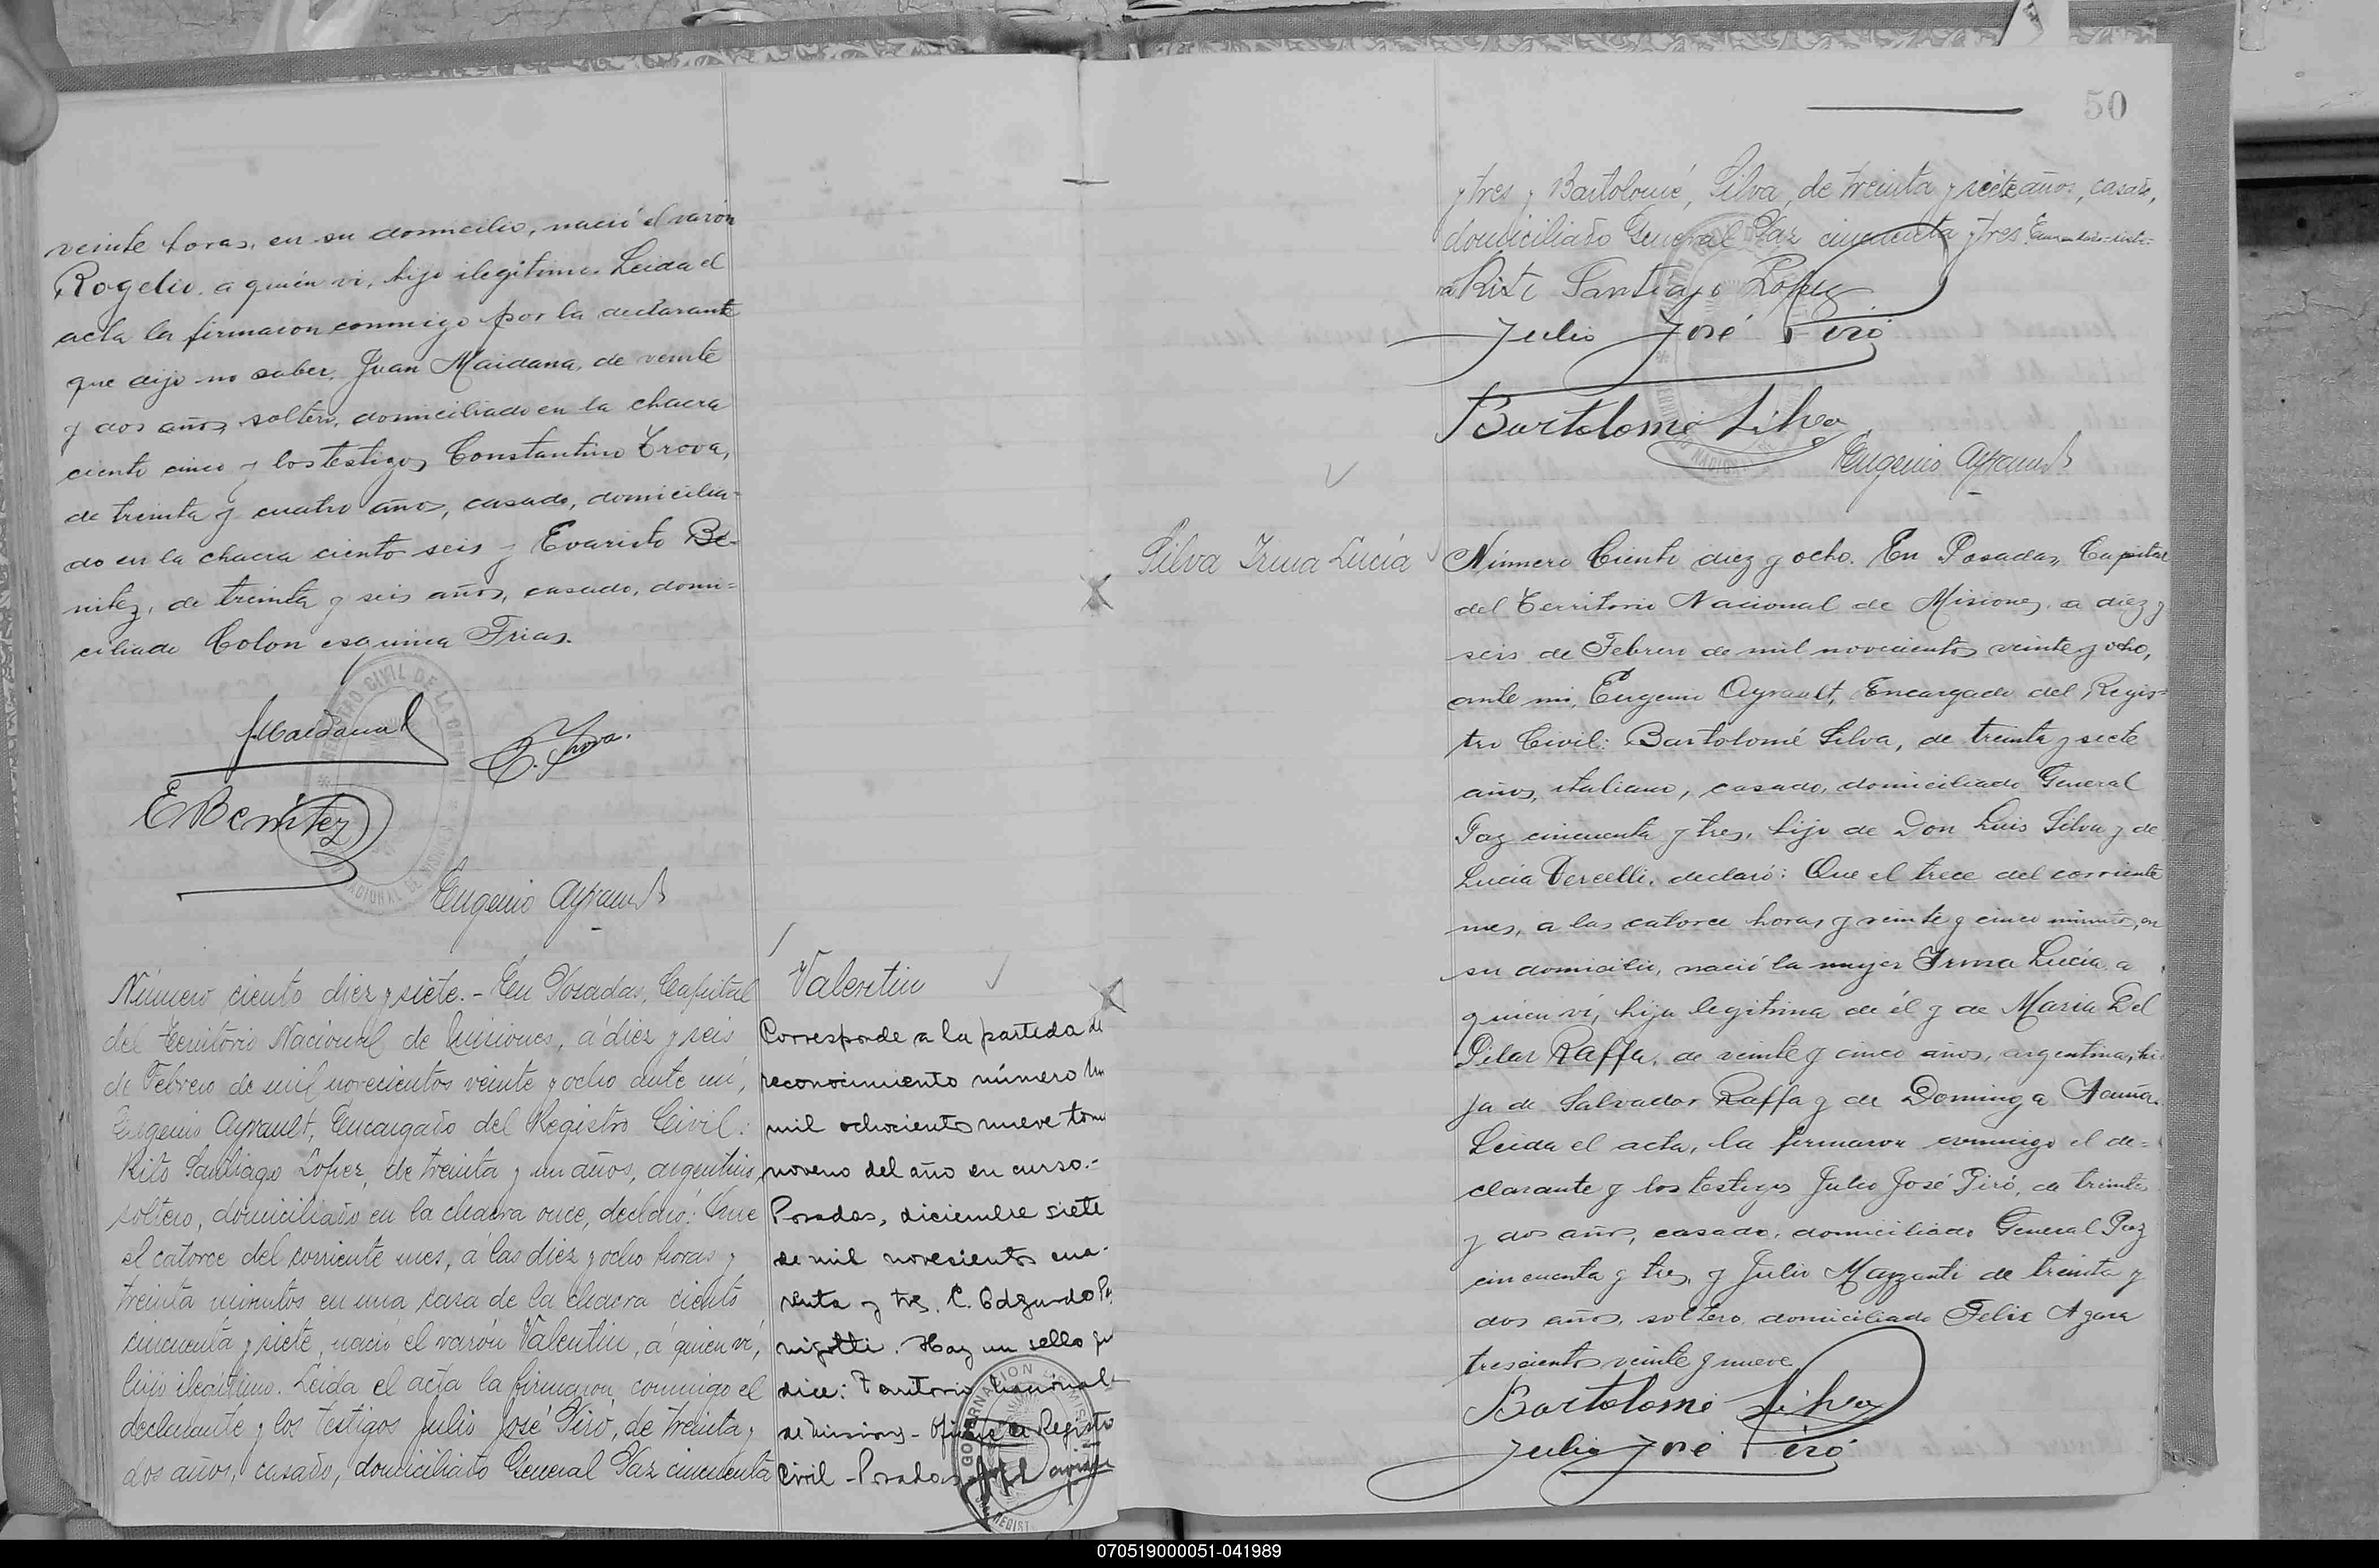 veinte horas, en su domicilio, nació el varón
Rogelio, a quién vi, hijo ilegítimo. Leida el
acta la firmaron conmigo por la declarante
que dijo no saber, Juan Maidana, de veinte
y dos años, soltero, domiciliado en la chacra
ciento cinco y los testigos Constantino Trova,
de treinta y cuatro años, casado, domicilia-
do en la chacra ciento seis y Evaristo Be-
nitez, de treinta y seis años, casado, domi=
ciliado Colon esquina Frias.
JMaidana
C. Trova.
E Benitez
Eugenio Ayrault
Número ciento diez y siete.- En Posadas, Capital
del Territorio Nacional de Misiones, á diez y seis
de Febrero de mil novecientos veinte y ocho ante mi,
Eugenio Ayrault, Encargado del Registro Civil:
Rito Santiago Lopez, de treinta y un años, argentino,
soltero, domiciliado en la chacra once, declaró: Que
el catorce del corriente mes, á las diez y ocho horas y
treinta minutos en una casa de la chacra ciento
cincuenta y siete, nació el varón Valentin, á quien vi,
hijo ilegítimo. Leida el acta la firmaron conmigo el
declarante y los testigos Julio José Piró, de treinta y
dos años, casado, domiciliado General Paz cincuenta
Valentin
Corresponde a la partida de
reconocimiento número
mil ochocientos nueve tomo
noveno del año en curso.-
Posadas, diciembre siete
de mil novecientos cua-
renta y tres. C. Edgardo
Hay un sello que
dice: Territorio Nacional
de Misiones - Oficina Registro
Civil - Posadas
50
y tres y Bartolomé Silva, de treinta y siete años, casado,
domiciliado General Paz cincuenta y tres.
Rito Santiago Lopez
Julio José Piró
Bartolomé Silva
Eugenio Ayrault
Silva Irma Lucía
Número Ciento diez y ocho. En Posadas, Capital
del Territorio Nacional de Misiones, a diez y
seis de Febrero de mil novecientos veinte y ocho,
ante mi, Eugenio Ayrault, Encargado del Regis=
tro Civil: Bartolomé Silva, de treinta y siete
años, italiano, casado, domiciliado General
Paz cincuenta y tres, hijo de Don Luis Silva y de
Lucía Vercelli, declaró: Que el trece del corriente
mes, a las catorce horas y veinte y cinco minutos, en
su domicilio, nació la mujer Irma Lucía, a
quien vi, hija legítima de él y de María Del
Pilar Raffa, de veinte y cinco años, argentina, hi
ja de Salvador Raffa y de Dominga Acuña.
Leida el acta, la firmaron conmigo el de=
clarante y los testigos Julio José Piró, de treinta
y dos años, casado, domiciliado General Paz
cincuenta y tres, y Julio Mazzanti de treinta y
dos años, soltero, domiciliado Felix Azara
trescientos veinte y nueve.
Bartolomé Silva
Julio José Piró
070519000051-041989